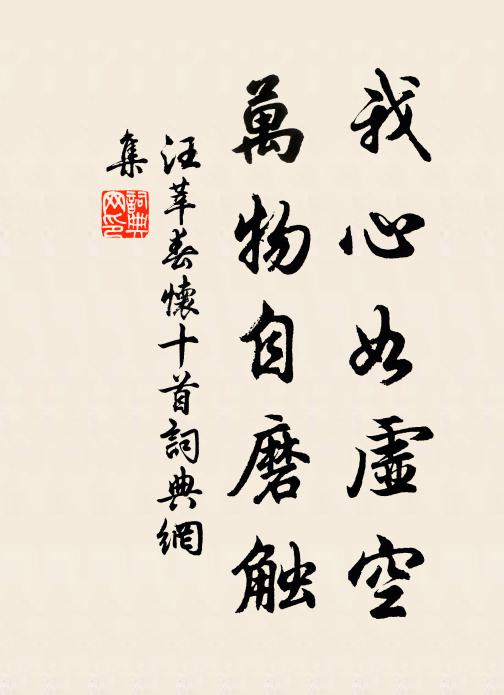 我心如虛空
萬物自磨触
汪莘春懷十首詞典網
集
詞典網印